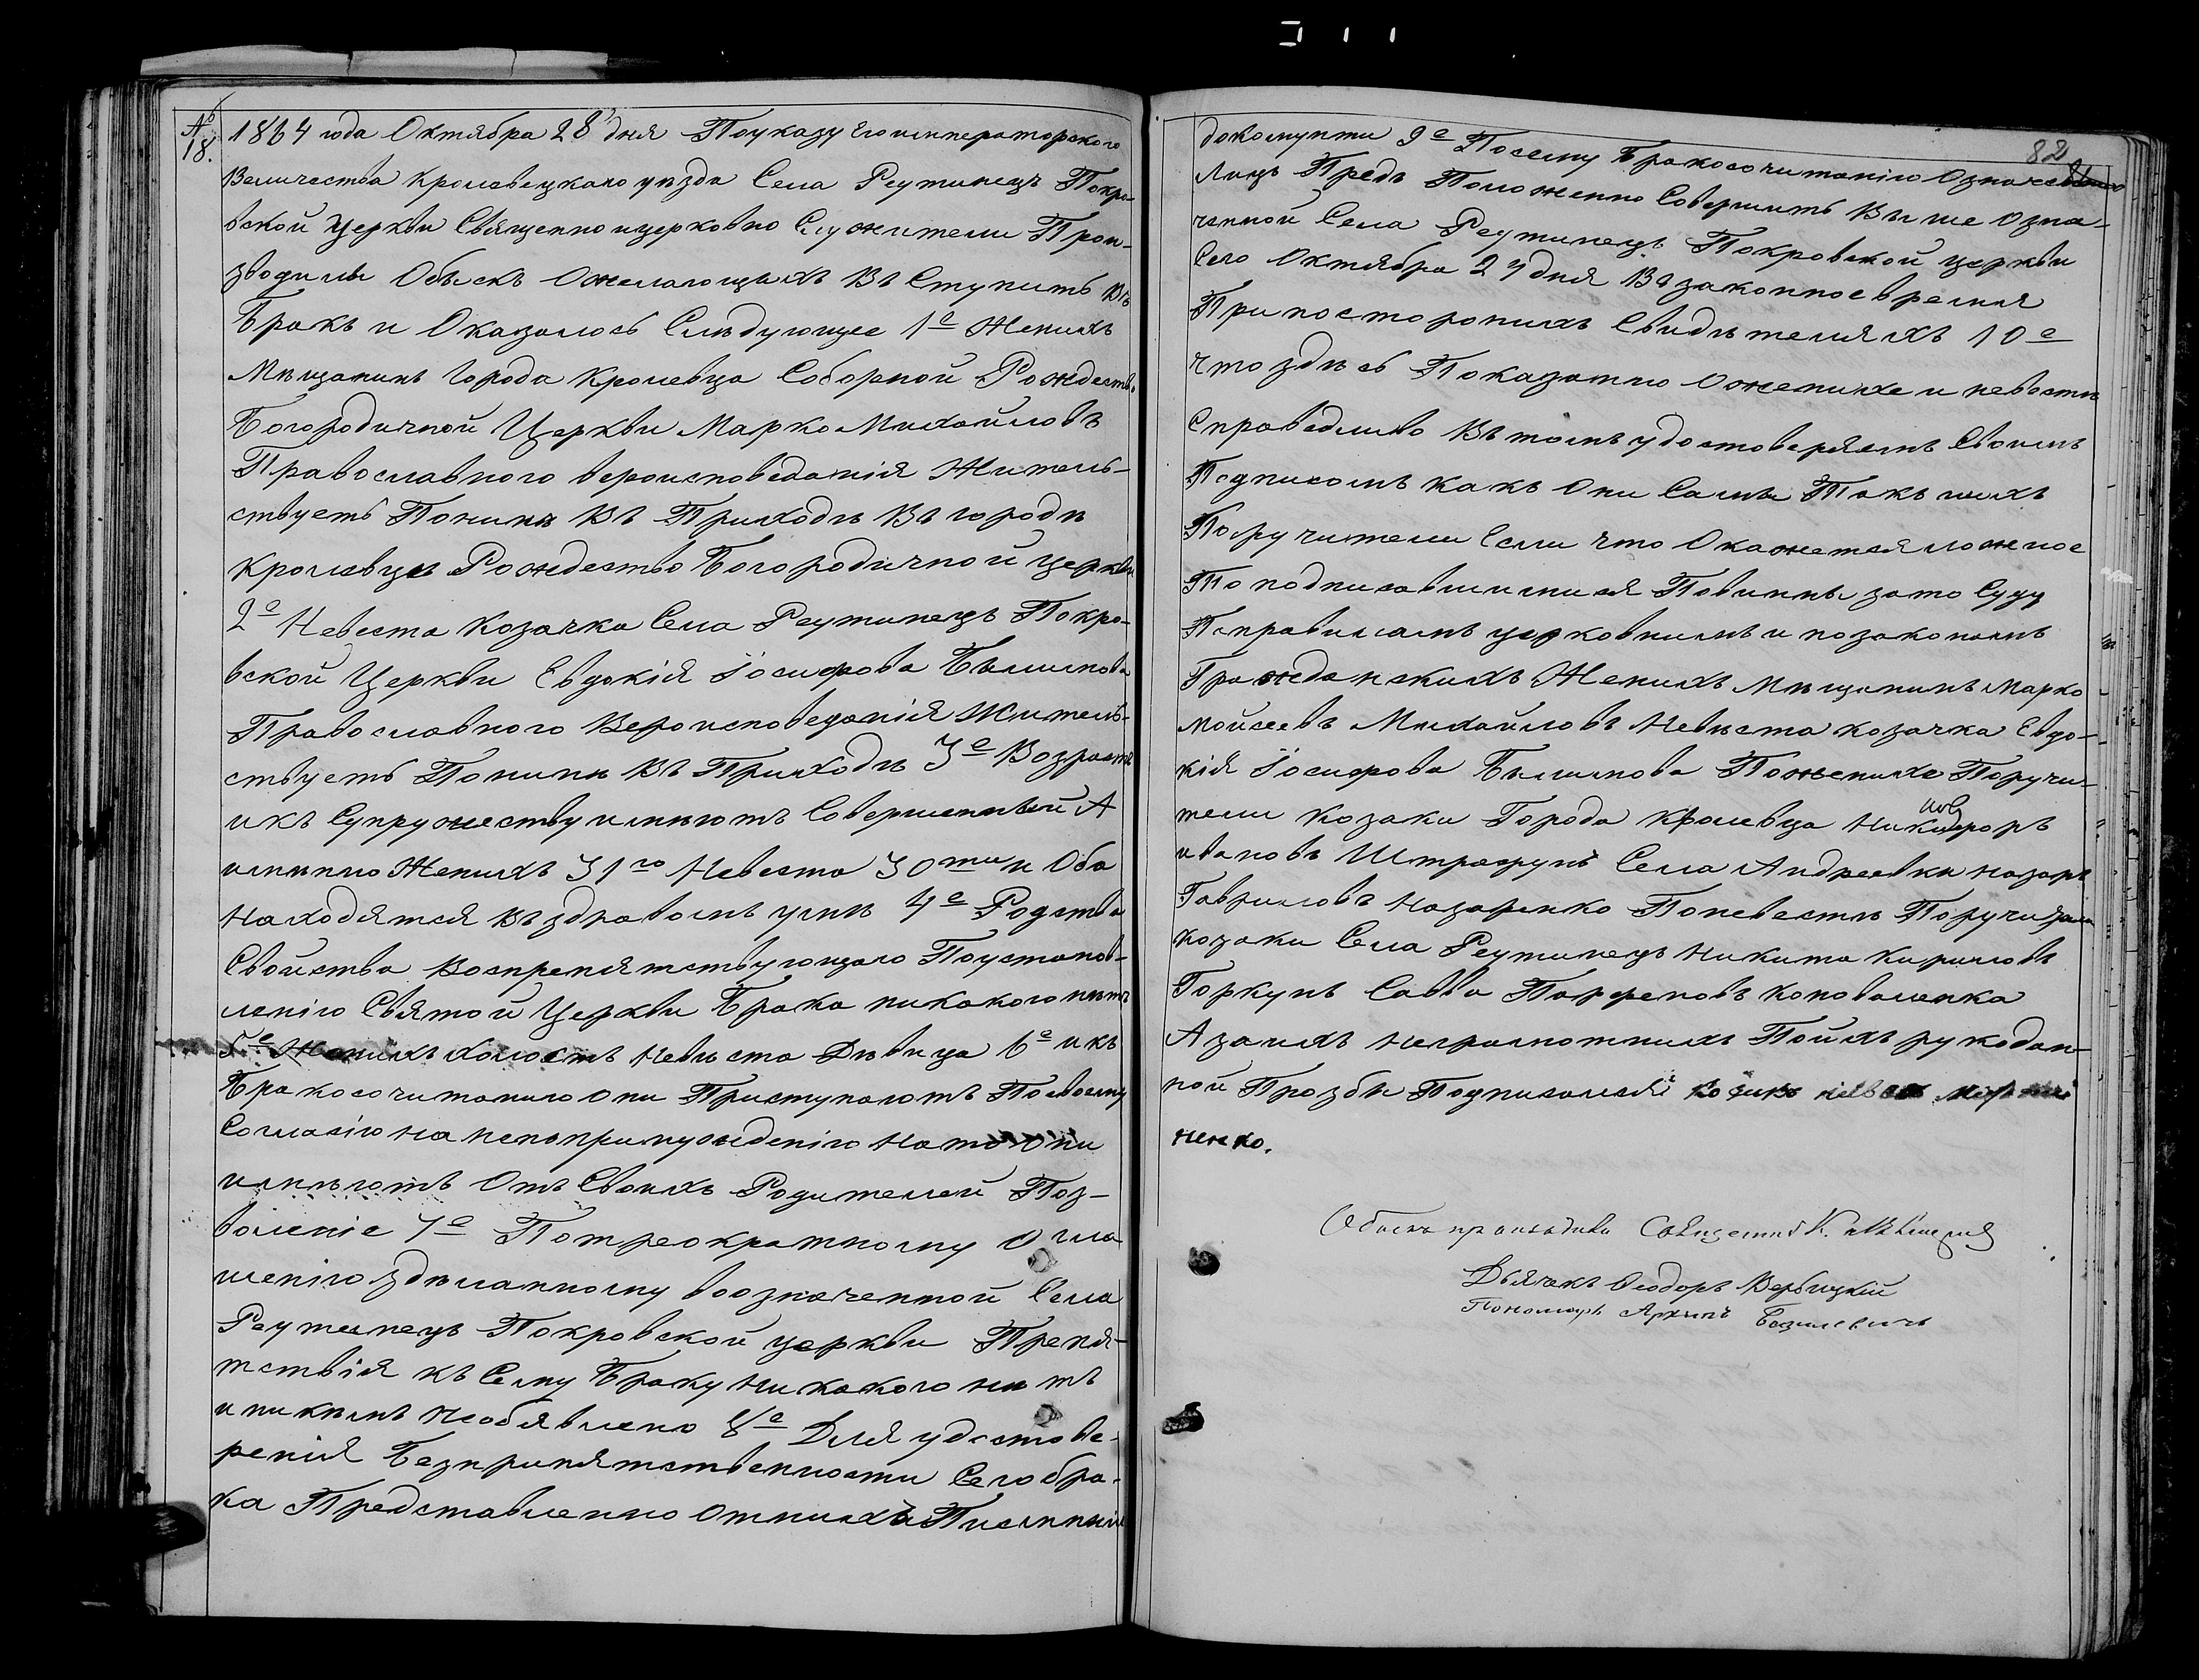 № 18. 1864 года Октября 28 дня Поуказу Его императорского
Величества Кролевецкаго уѣзда Села Реутинецъ Покро-
вской Церкви Священно ицерковно Служители Прои-
зводили Обыскъ Ожелающихъ Въ Ступить Въ
Бракъ и Оказалось Слѣдующее 1е Женихъ
Мѣщанинъ Города Кролевца Соборной Рождество
Богородичной Церкви Марко Михайловъ
Православного вероисповеданія Житель-
ствуетъ Понинѣ Въ Приходѣ Въ городѣ
Кролевце Рождество Богородичной Церкви
2е Невеста Козачка Села Реутинецъ Покро-
вской Церкви Евдокія Іосифова
Православного Вероисповеданія Житель-
ствуетъ Понинѣ Въ Приходѣ 3е Возрастъ
икъ Супружеству имѣютъ Совершенный А
имѣнно Женихъ 31го Невеста 30ти и Оба
Находятся Въздравомъ умѣ 4е Родства
Свойства Воспрепятствующаго Поустанов-
ленію Святой Церкви Брака никакого нѣтъ
5е Женихъ холостъ Невѣста Дѣвица 6е икъ
Бракосочитанию они Приступаютъ Посвоему
Согласію на непопринужденію Нато они
имѣютъ Отъ Своихъ Родителей Поз-
воленіе 7е Потреократному Огла-
шенію здѣланному воозначенной Села
Реутинецъ Покровской церкви Препя-
тствія къ Сему Браку Никакого нѣтъ
иникѣмъ Необявлено 8е Для удостове-
ренія Безпрепятственности Сего бра-
ка Представленно отнихъ Писмѣный
докомунти 9е Посему Бракосочитанію Означе
82
Лицъ Предъ Положенно Совершить Выше Озна-
ченной Села Реутинецъ Покровской церкви
Сего Октября 27 дня Въ законное время
Припосторонихъ Свидѣтеляхъ 10е
Что здѣсь Показанно Ожениxе и невестѣ
Справедливо Въ томъ удостоверяемъ Своимъ
Подписомъ Какъ Они Самы Такъ ихъ
Поручители Если что Окажется ложное
То подписавшишися Повинны зато Суду
Поправиламъ церковнимъ и позаконамъ
Гражданскихъ Женихъ Мѣщанинъ Марко
Мойсеевъ Михайловъ Невѣста козачка Евдо-
кія Іосифова Пожениxе Поручи-
тели Козаки Города Кролевца Никифоръ
ивановъ Штрафунъ Села Андреевки назаръ
Гавриловъ Назаренко Поневестѣ Поручители
Козаки Села Реутинецъ Никита Кириловъ
Горкунъ Савва Парфеновъ Коноваленка
А заихъ Неграмотнихъ Поихъ рукодан-
ной Прозби Подписался козакъ
ненко.
Обыскъ производили Священникъ
Дьячекъ Ѳеодоръ Вербицкій
Пономарь Архипъ Базилевичъ